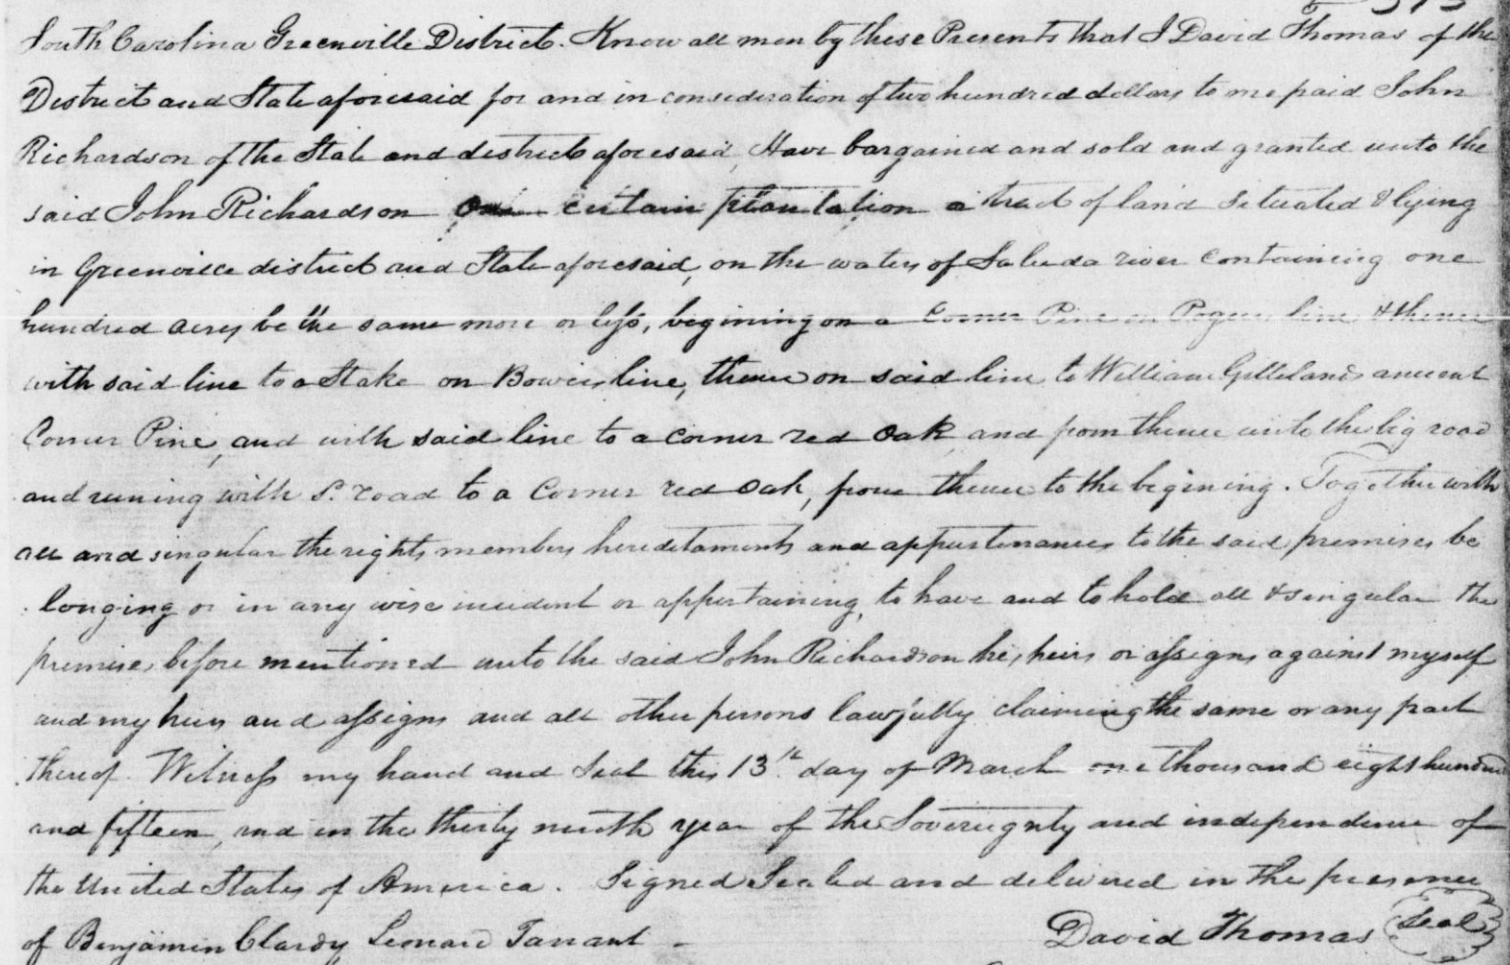 South Carolina Greenville District. Know all men by these Presents that I David Thomas of the
District and State aforesaid for and in consideration of two hundred dollars to me paid John
Richardson of the State and district aforesaid, Have bargained and sold and granted unto the
said John Richardson one certain plantation a tract of land situated & lying
in Greenville district and State aforesaid, on the waters of Saluda river containing one
hundred acres be the same more or less, begining on a Corner Pine on line & thence
with said line to a Stake on Bowers line, thence on said line to William Gillelands
Corner Pine, and with said line to a corner red oak and from thence unto the big road
and runing with Sd. road to a Corner red oak, from thence to the begining. Together with
all and singular the rights members hereditaments and appurtenances to the said premises be
longing or in any wise incident or appertaining, to have and to hold all & singular the
premises before mentioned unto the said John Richardson his heirs or assigns against myself
and my heirs and assigns and all other persons lawfully claiming the same or any part
thereof. Witness my hand and Seal this 13th day of March one thousand eight hundred
and fifteen, and in the thirty ninth year of the Sovereignty and independence of
the United States of America. Signed Sealed and delivered in the presence
of Benjamin Clardy Leonard Tarrant - David Thomas Seal